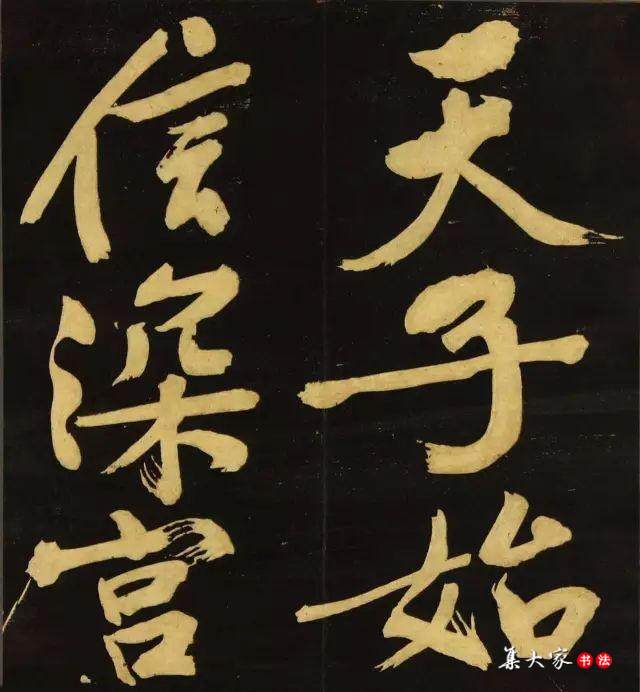 天子始
信深宫
集大家书法